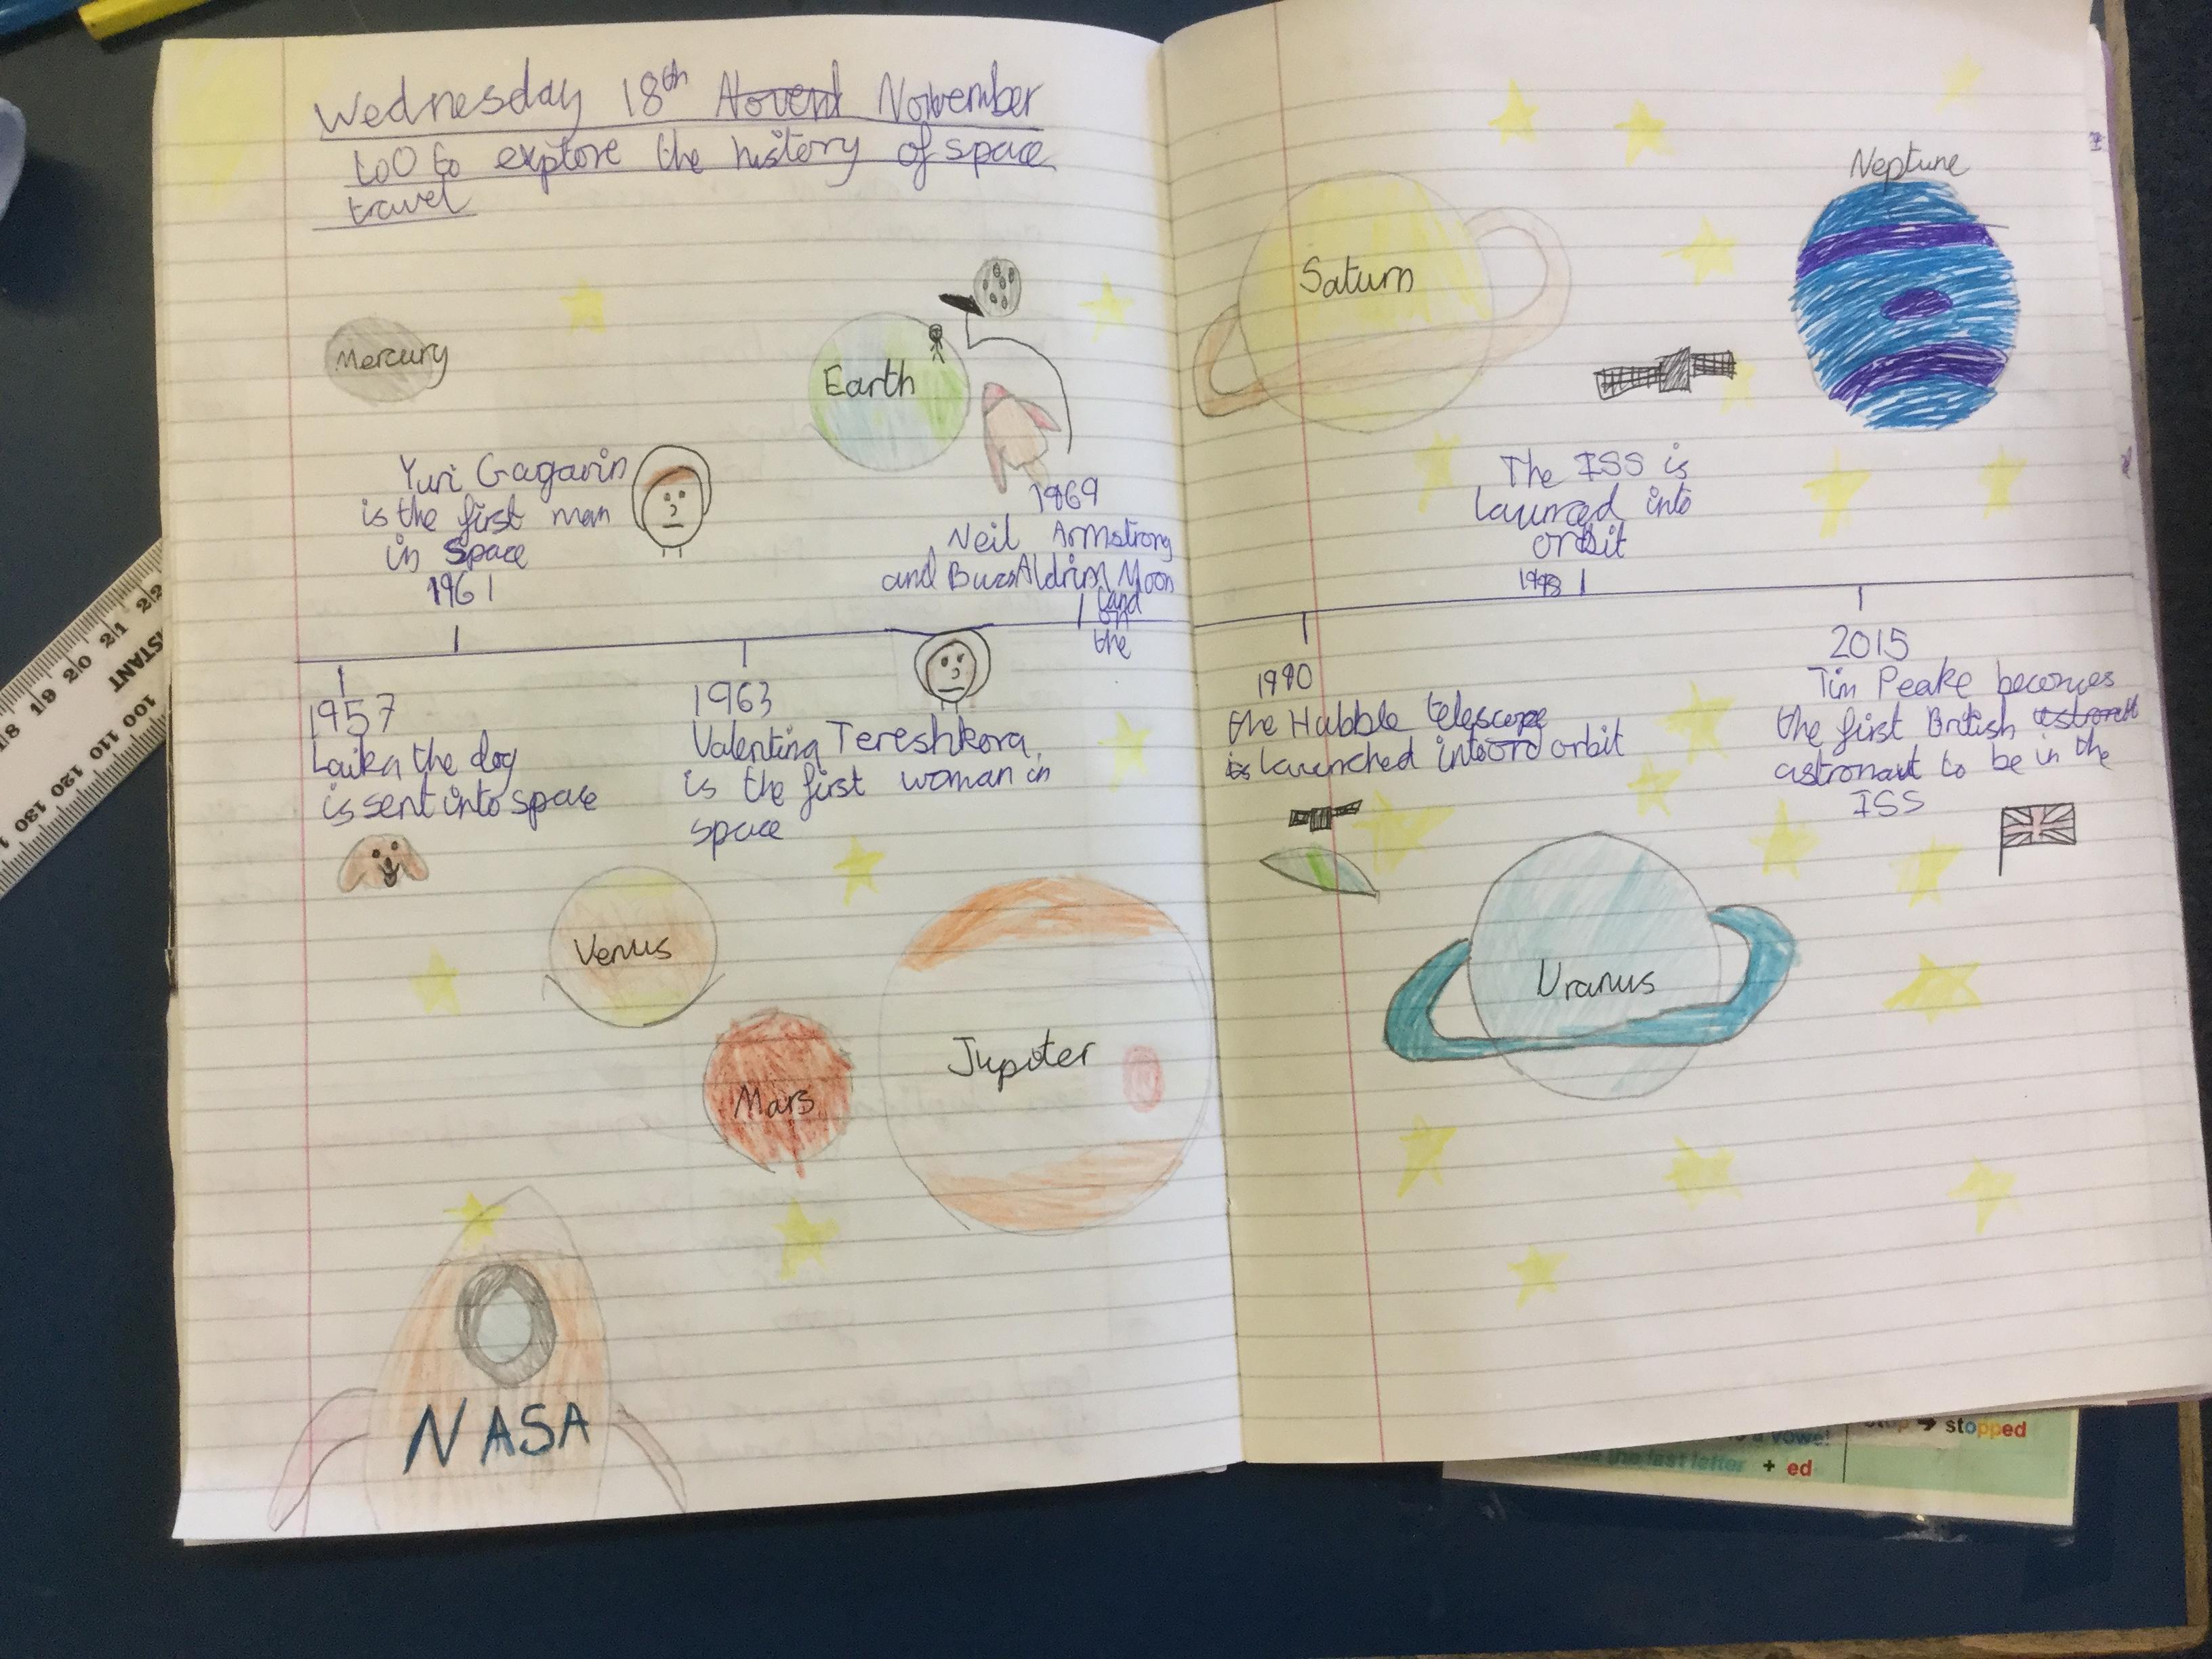 Wednesday 18th Novemt November
to explore the history of space
travel
Mercury
Earth
Yuri Gagarin
is the first man
in Space
1961
1969
Neil Armstrong
and Buzz Aldrin Moon
land
on
the
1957
Laika the dog
is sent into space
1963
Valentina Tereshkova
is the first woman in
space
Venus
Mars
Jupiter
NASA
Saturn
Neptune
The ISS is
Launced into
orbit
1998
1990
the Hubble telescope
is launched into ord orbit
2015
Tim Peake becomes
the first British
astronaut to be in the
ISS
Uranus
stopped
the last letter + ed
a vowel
STANT
100 110 120 130